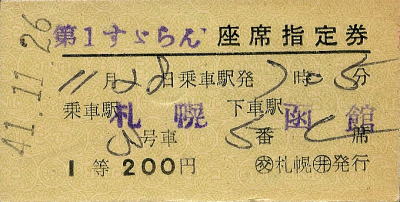 41.11.26
第1すゞらん 座席指定券
11月28日乗車駅発7時05分
乗車駅 札幌 下車駅 函館
号車 5番 席
1等200円 ㊋札幌㊌発行